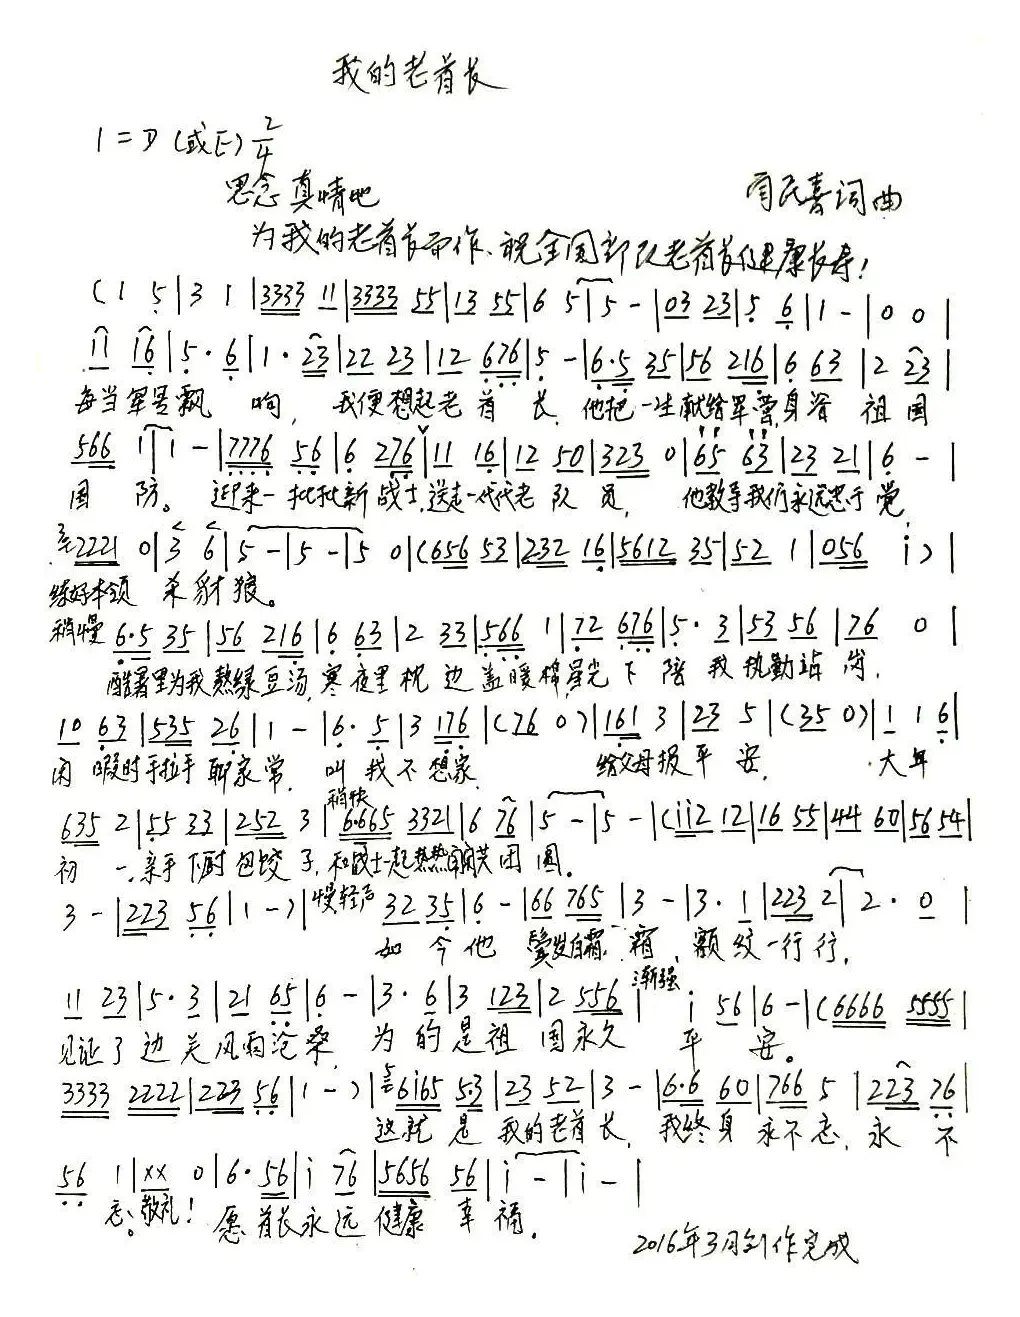 我的老首长
1=D(或E) 2/4
思念真情地
民喜词曲
为我的老首长而作、祝全国部队老首长健康长寿!
(1 5|3 1|3333 11|3333 55|13 55|6 5|5 -|03 23|5 6|1 -|0 0|
11 16|5· 6|1· 23|22 23|12 676|5 -|6·5 35|56 216|6 63|2 23|
每当军号飘响, 我便想起老首长, 他把一生献给军营,身脊 祖国
566 1|1 -|7776 56|6 276|11 16|12 50|323 0|65 63|23 21|6 -|
国防。 迎来一批批新战士,送走一代代老队员, 他教导我们永远忠于党
2221 0|3 6|5 -|5 -|5 0|(656 53|232 16|5612 35|52 1|056 i)|
练好本领 杀豺狼。
稍慢 6·5 35|56 216|6 63|2 33|566 1|72 676|5· 3|53 56|76 0|
酷暑里为我熬绿豆汤,寒夜里枕边盖暖棉,星光下陪我执勤站岗,
10 63|535 26|1 -|6· 5|3 176|(76 0)|161 3|23 5|(35 0)|1 1 6|
闲暇时手拉手聊家常, 叫我不想家 给父母报平安, 大年
稍快
635 2|55 33|252 3|6·665 3321|6 76|5 -|5 -|(ii2 12|16 55|44 60|56 54|
初一,亲手下厨包饺子,和战士一起热热闹闹共团圆。
3 -|223 56|1 -)|慢轻声 32 35|6 -|66 765|3 -|3· 1|223 2|2· 0|
如今他 鬓发白霜 霜, 额纹一行行,
渐强
11 23|5· 3|21 65|6 -|3· 6|3 123|2 556| i 56|6 -|(6666 5555|
见证了边关风雨沧桑, 为的是祖国永久 平安。
3333 2222|223 56|1 -)|6i65 5·3|23 52|3 -|6·6 60|766 5|223 76|
这就是我的老首长, 我终身永不忘, 永不
56 1|xx 0|6· 56|i 76|5656 56|i -|i -|
忘。敬礼! 愿首长永远健康幸福。
2016年3月创作完成